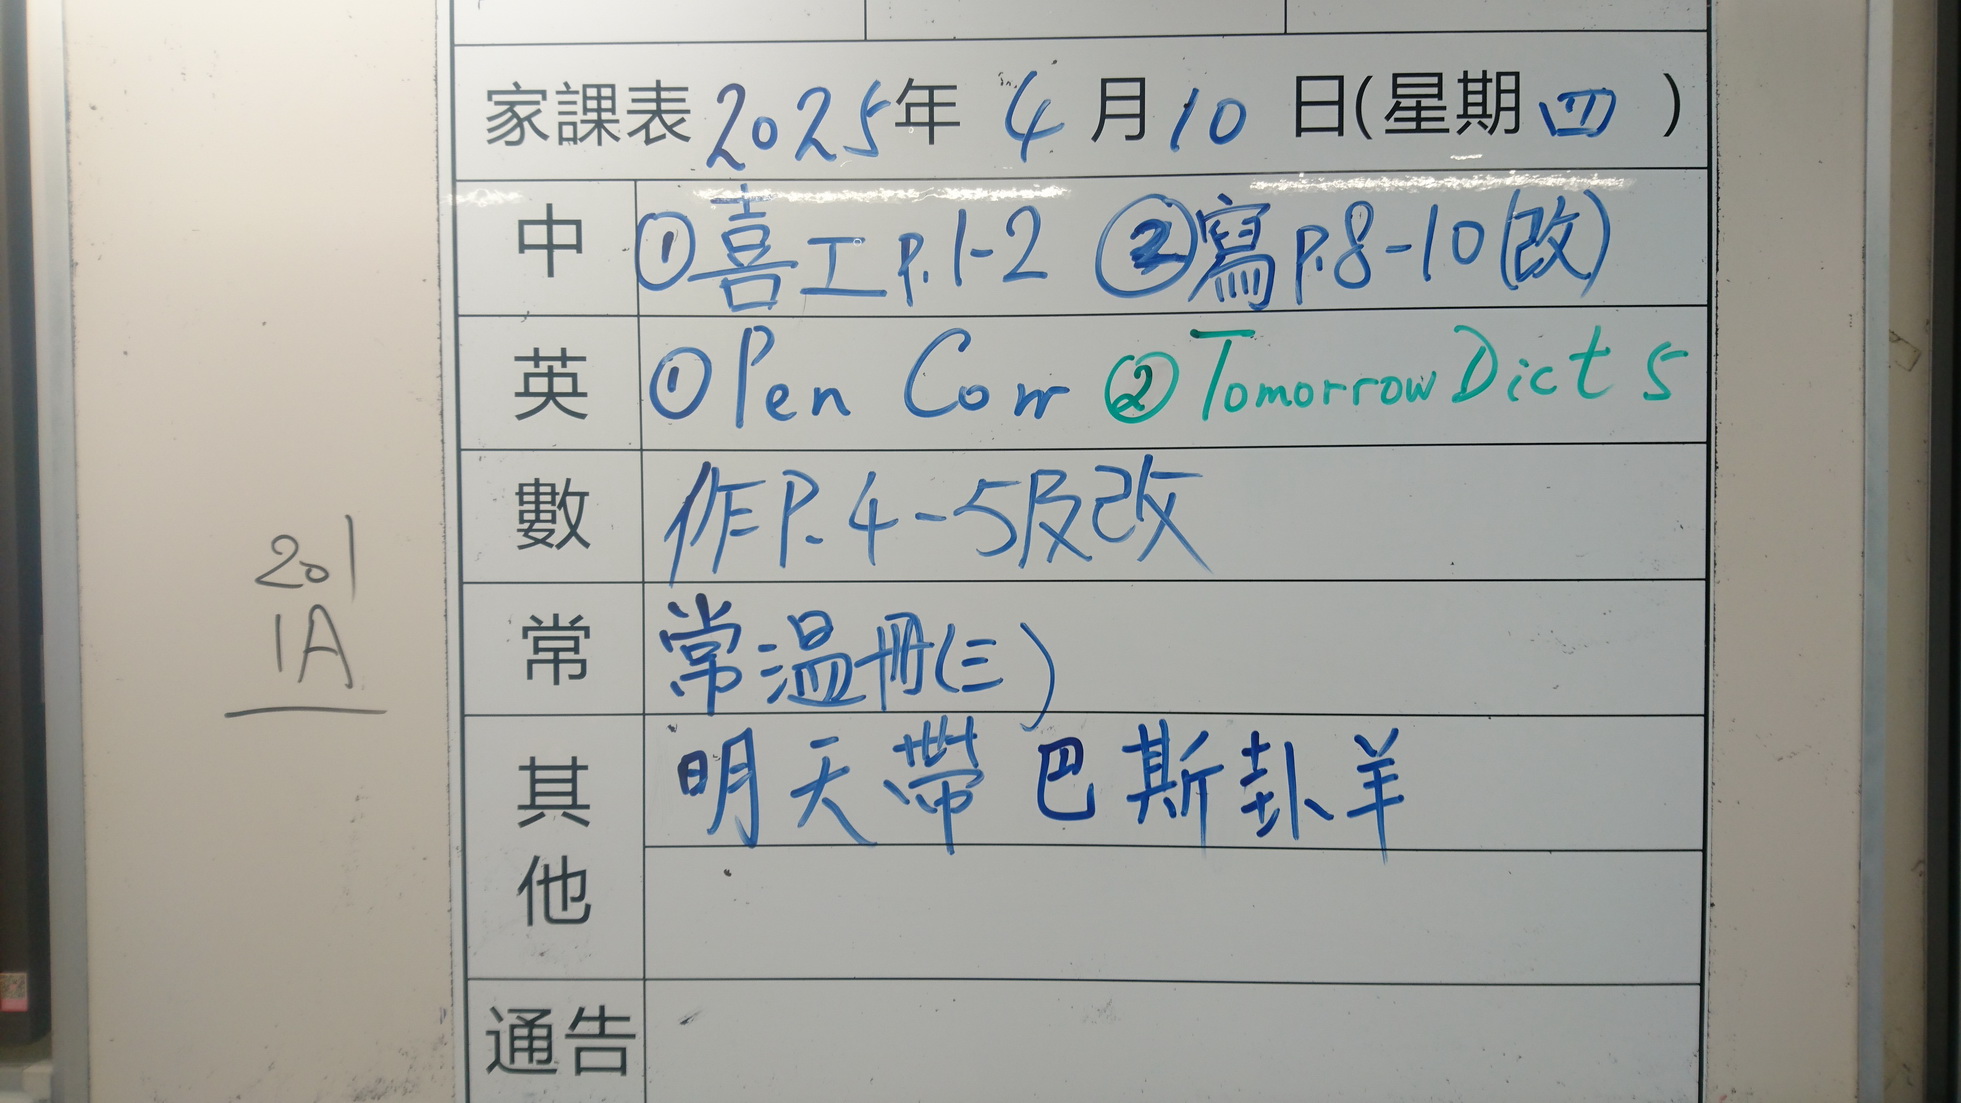 家課表 2025年 4月10日(星期四)
中 ①喜工p.1-2 ②寫p.8-10(改)
英 ①Pen Corr ②Tomorrow Dict 5
數 作P.4-5及改
常 常溫冊(三)
其他 明天帶巴斯卦羊
通告
201
1A